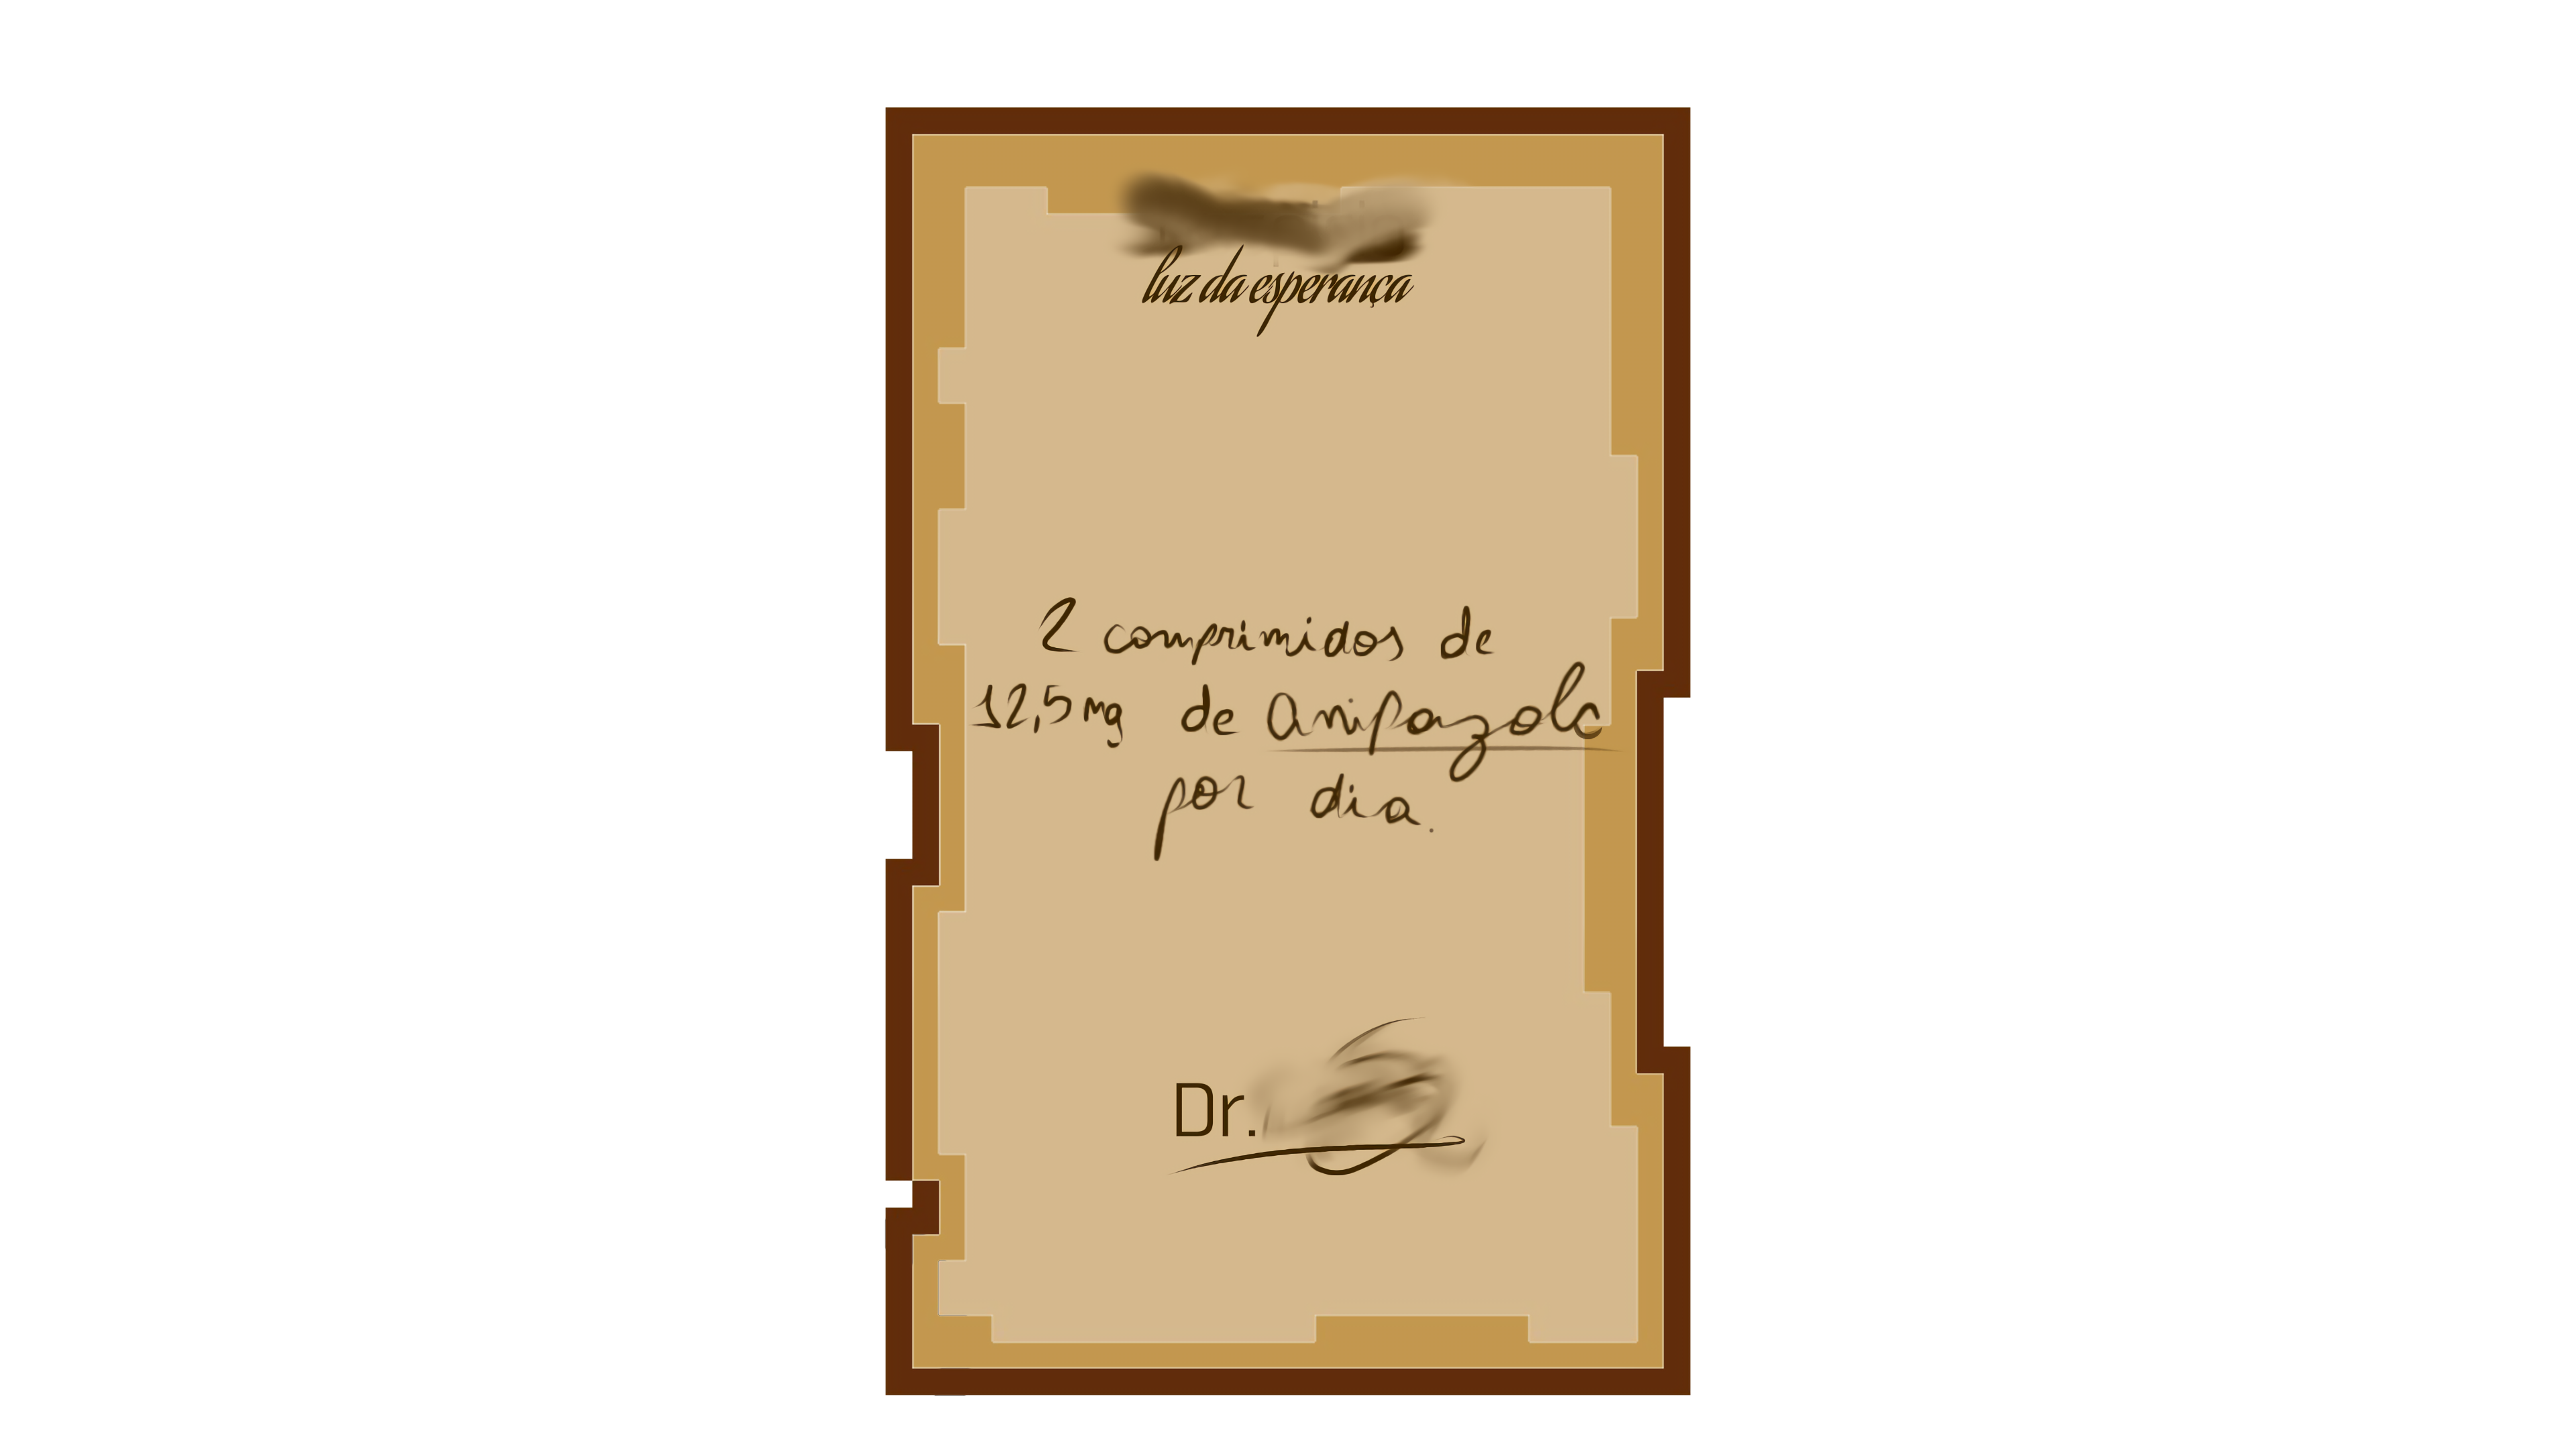 luz da esperança
2 comprimidos de
12,5mg de aripazola
por dia.
Dr.